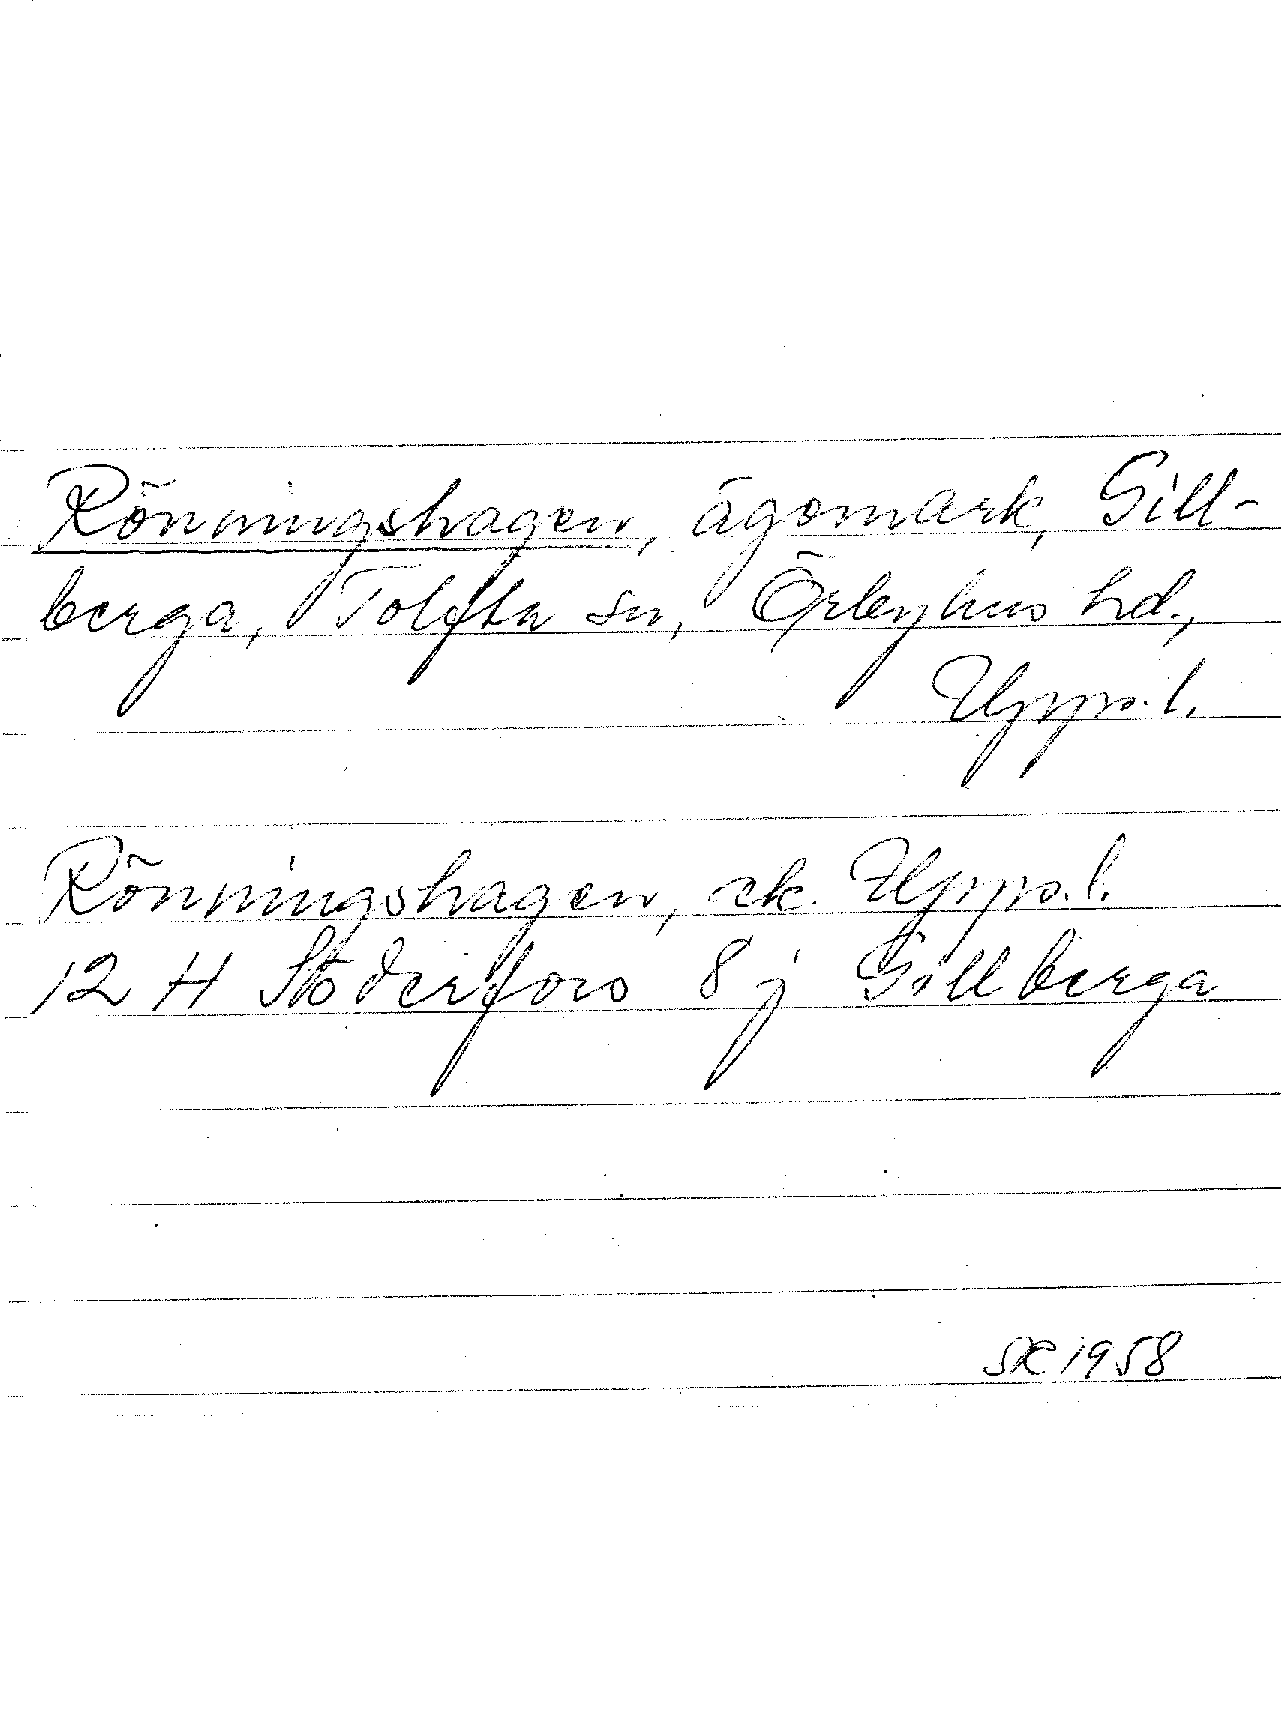 Rönningshagen, ägomark, Gill-
berga, Tolfta sn, Örbyhus hd.,
Upps. l.
Rönningshagen, ek. Upps. l.
12 H Söderfors 8 j Gillberga
SK 1958